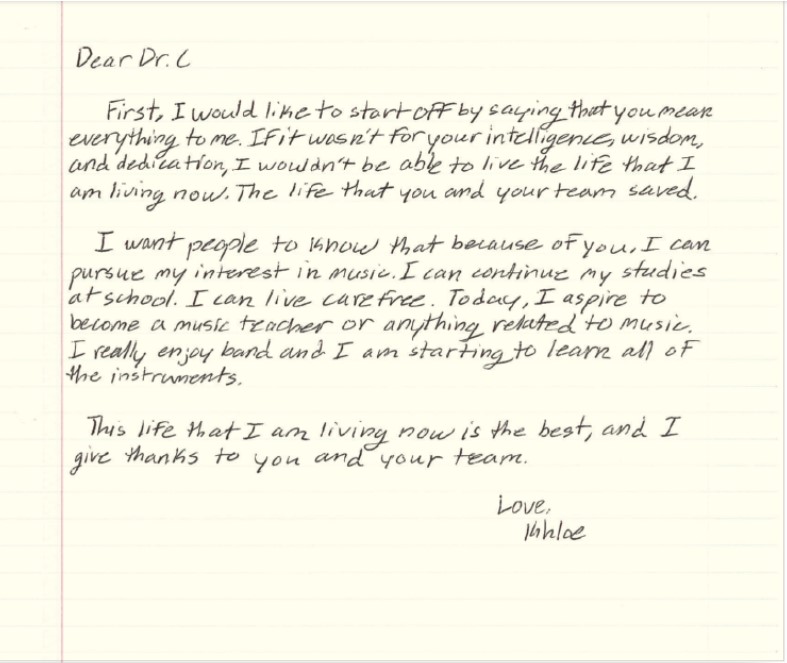 Dear Dr. C
First, I would like to start off by saying that you mean
everything to me. If it wasn't for your intelligence, wisdom,
and dedication, I wouldn't be able to live the life that I
am living now. The life that you and your team saved.
I want people to know that because of you, I can
pursue my interest in music. I can continue my studies
at school. I can live carefree. Today, I aspire to
become a music teacher or anything related to music.
I really enjoy band and I am starting to learn all of
the instruments.
This life that I am living now is the best, and I
give thanks to you and your team.
Love,
Khloe